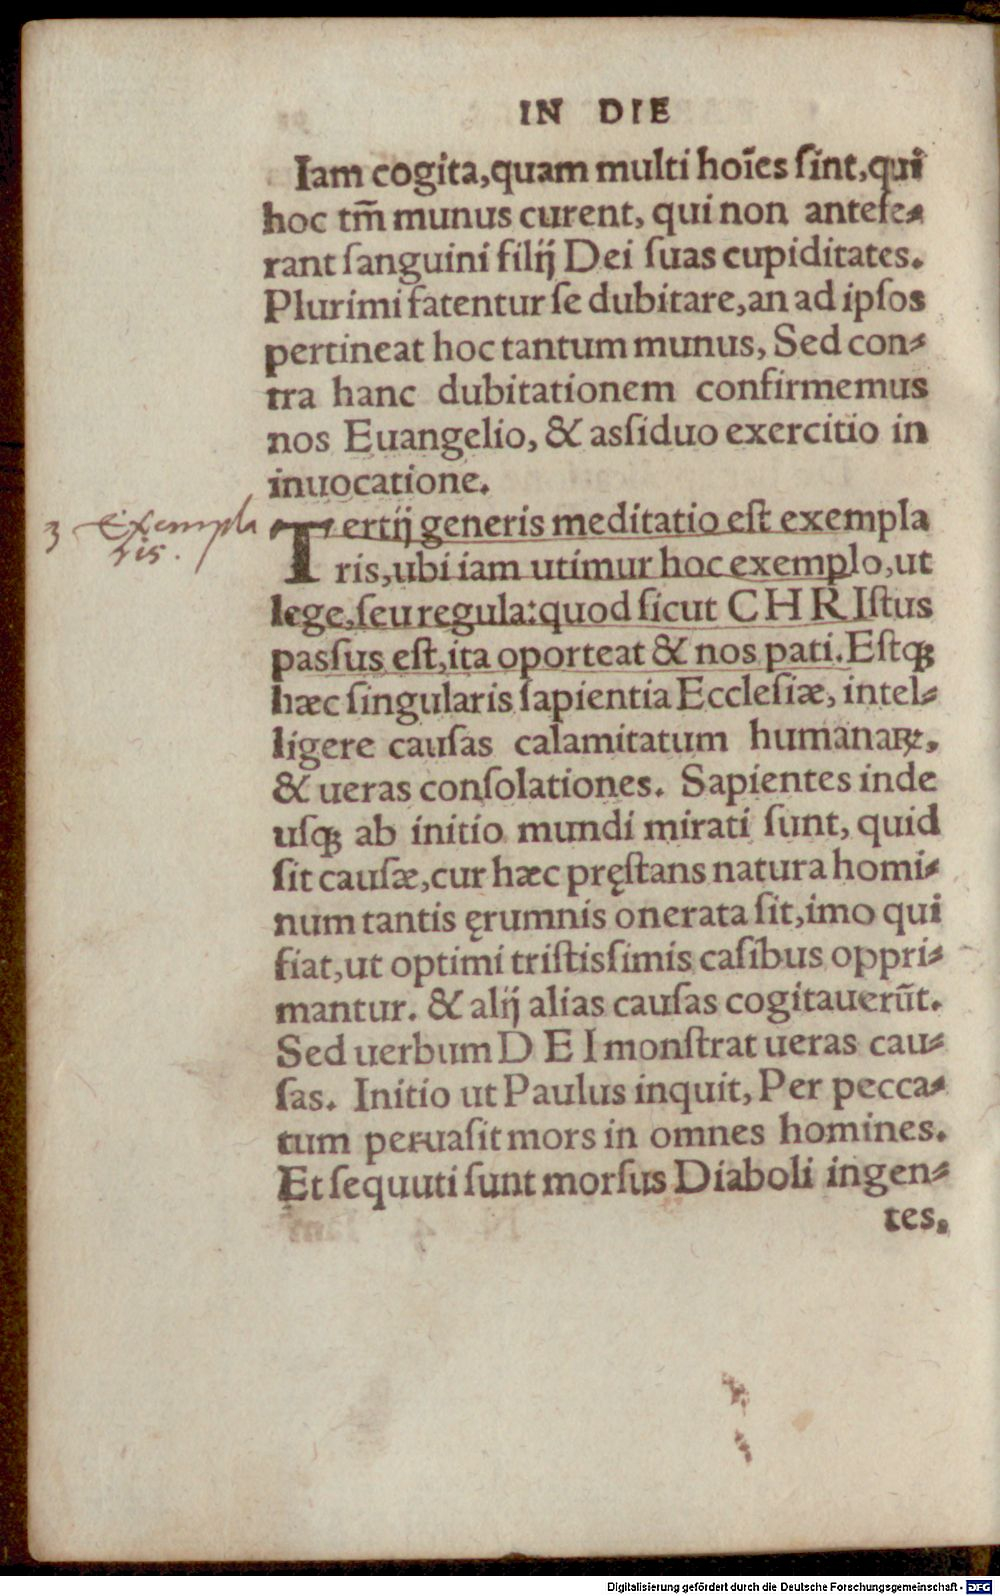 IN DIE
Iam cogita, quam multi hoīes ſint, qui
hoc tm̄ munus curent, qui non antefe⸗
rant ſanguini filij Dei ſuas cupiditates.
Plurimi fatentur ſe dubitare, an ad ipſos
pertineat hoc tantum munus, Sed con⸗
tra hanc dubitationem confirmemus
nos Euangelio, & aſsiduo exercitio in
inuocatione.
3 Exempla
ris.
Tertij generis meditatio eſt exempla
ris, ubi iam utimur hoc exemplo, ut
lege, ſeu regula: quod ſicut CHRIſtus
paſsus eſt, ita oporteat & nos pati. Eſtqꝫ
hæc ſingularis ſapientia Eccleſiæ, intel⸗
ligere cauſas calamitatum humanaꝝ,
& ueras conſolationes. Sapientes inde
uſqꝫ ab initio mundi mirati ſunt, quid
ſit cauſæ, cur hæc pręſtans natura homi⸗
num tantis ęrumnis onerata ſit, imo qui
fiat, ut optimi triſtiſsimis caſibus oppri⸗
mantur. & alij alias cauſas cogitauerūt.
Sed uerbum DEI monſtrat ueras cau⸗
ſas. Initio ut Paulus inquit, Per pecca⸗
tum peruaſit mors in omnes homines.
Et ſequuti ſunt morſus Diaboli ingen⸗
tes.
Digitalisierung gefördert durch die Deutsche Forschungsgemeinschaft - DFG